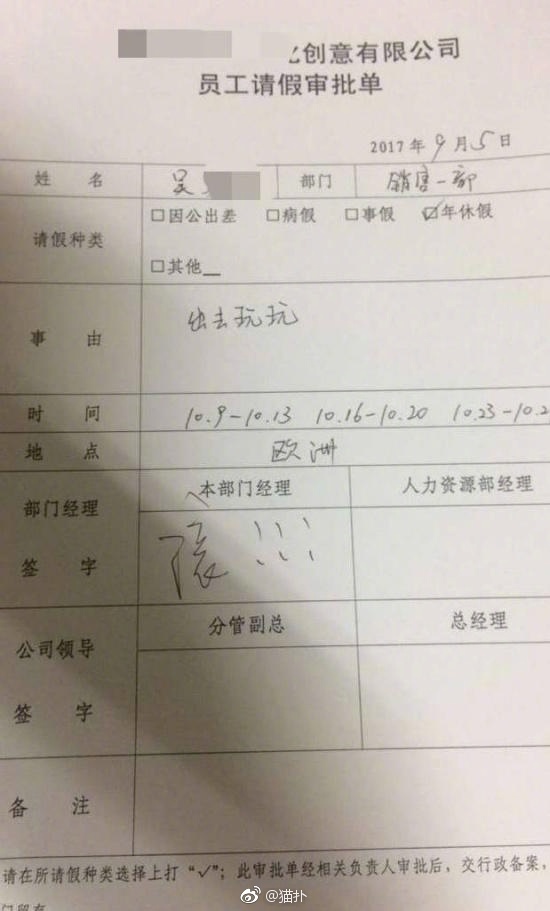 创意有限公司
员工请假审批单
2017年9月5日
姓名 吴 部门 销售一部
请假种类 □因公出差 □病假 □事假 ☑年休假
□其他__
事由 出去玩玩
时间 10.9-10.13 10.16-10.20 10.23-10.2
地点 欧洲
部门经理签字 本部门经理 人力资源部经理
!!!
公司领导签字 分管副总 总经理
备注
请在所请假种类选择上打“√”；此审批单经相关负责人审批后，交行政备案，
门留存
@猫扑